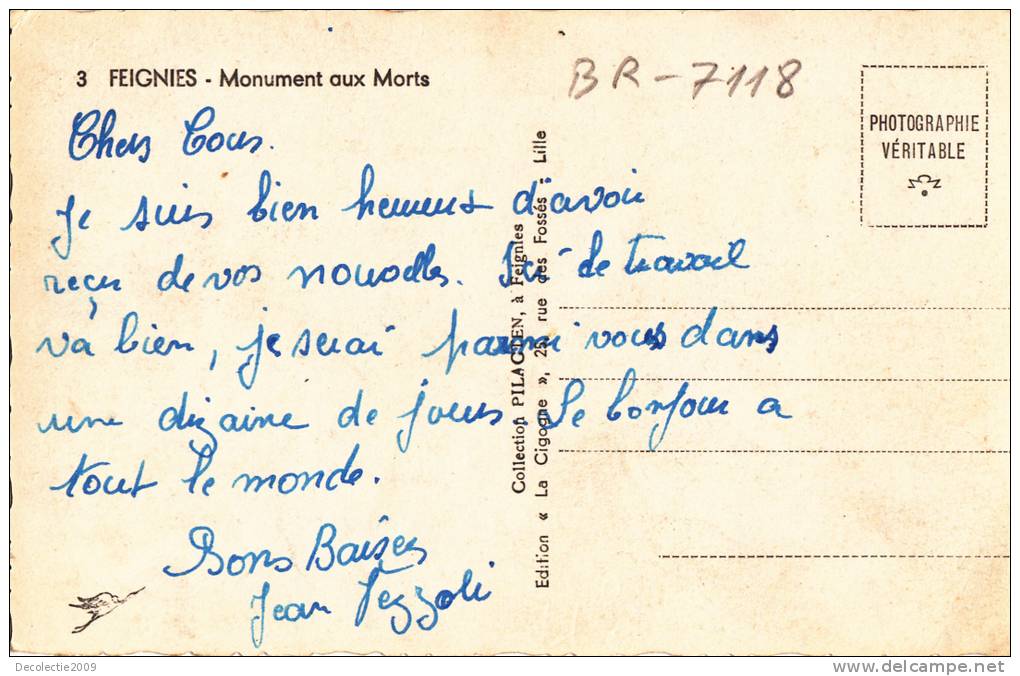 3 FEIGNIES - Monument aux Morts
BR-7118
PHOTOGRAPHIE
VÉRITABLE
Chers Tous.
Je suis bien heureux d'avoir
reçu de vos nouvelles. Ici le travail
va bien, je serai parmi vous dans
une dizaine de jours Le bonjour a
tout le monde.
Bons Baisers
Jean Pezzoli
Collection PILACTEN, à Feignies
Edition « La Cigogne », 25, rue des Fossés - Lille
Decolectie2009
www.delcampe.net